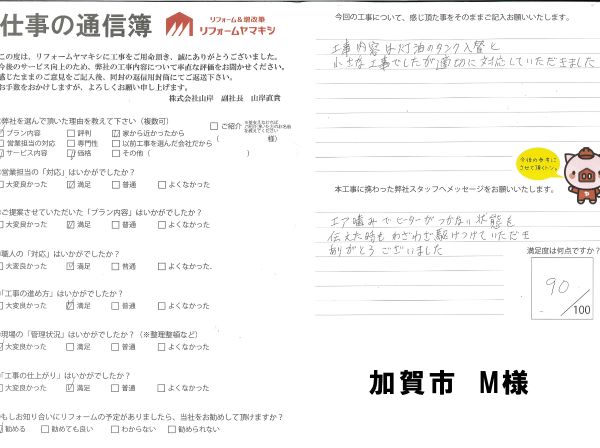 仕事の通信簿
リフォーム&増改築
リフォームヤマキシ
この度は、リフォームヤマキシに工事をご用命頂き、誠にありがとうございました。
今後のサービス向上のため、弊社の工事内容について率直な評価をお聞かせください。
感じたままのご意見をご記入後、同封の返信用封筒にてご返送下さい。
お手数をおかけしますが、よろしくお願い申し上げます。
株式会社山岸 副社長 山岸直貴
弊社を選んで頂いた理由を教えて下さい（複数可）
プラン内容 □評判 ☑家から近かったから □ご紹介
営業担当の対応 □専門性 □以前工事を選んだ会社だから（ 様）
サービス内容 ☑価格 □その他（ ）
営業担当の「対応」はいかがでしたか？
大変良かった ☑満足 □普通 □よくなかった
ご提案させていただいた「プラン内容」はいかがでしたか？
大変良かった ☑満足 □普通 □よくなかった
職人の「対応」はいかがでしたか？
大変良かった ☑満足 □普通 □よくなかった
「工事の進め方」はいかがでしたか？
大変良かった ☑満足 □普通 □よくなかった
現場の「管理状況」はいかがでしたか？（※整理整頓など）
大変良かった ☑満足 □普通 □よくなかった
「工事の仕上がり」はいかがでしたか？
大変良かった ☑満足 □普通 □よくなかった
もしお知り合いにリフォームの予定がありましたら、当社をお勧めして頂けますか？
勧める □勧めても良い □わからない □勧められない
今回の工事について、感じ頂た事をそのままご記入お願いいたします。
工事内容は灯油のタンク入替と
小さな工事でしたが適切に対応していただきました
今後の参考に
させて頂くトン。
本工事に携わった弊社スタッフへメッセージをお願いいたします。
エア噛みでヒーターがつかない状態を
伝えた時も わざわざ駆けつけていただき
ありがとうございました
満足度は何点ですか？
90
/100
加賀市 M様